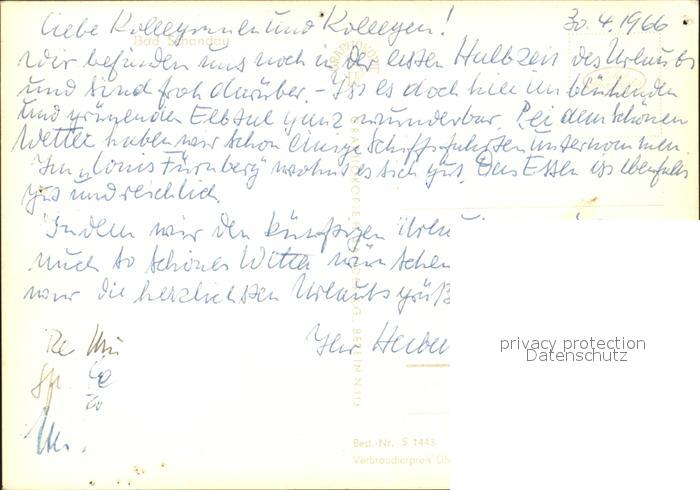 Liebe Kolleginnen und Kollegen! 30.4.1966
Bad Schandau
Wir befinden uns noch in der ersten Halbzeit des Urlaubs
und sind froh darüber. – Ist es doch hier im blühenden
und grünenden Elbtal ganz wunderbar. Bei dem schönen
Wetter haben wir schon einige Schiffsfahrten unternommen.
Im „Louis Fürnberg" wohnt es sich gut. Das Essen ist ebenfalls
gut und reichlich.
Indem wir den künftigen
auch so schönes Wetter wünschen
wir die herzlichsten Urlaubsgrüß
Ihr
BERLIN N 113
privacy protection
Datenschutz
Best.-Nr. S 1443
Verbraucherpreis DM